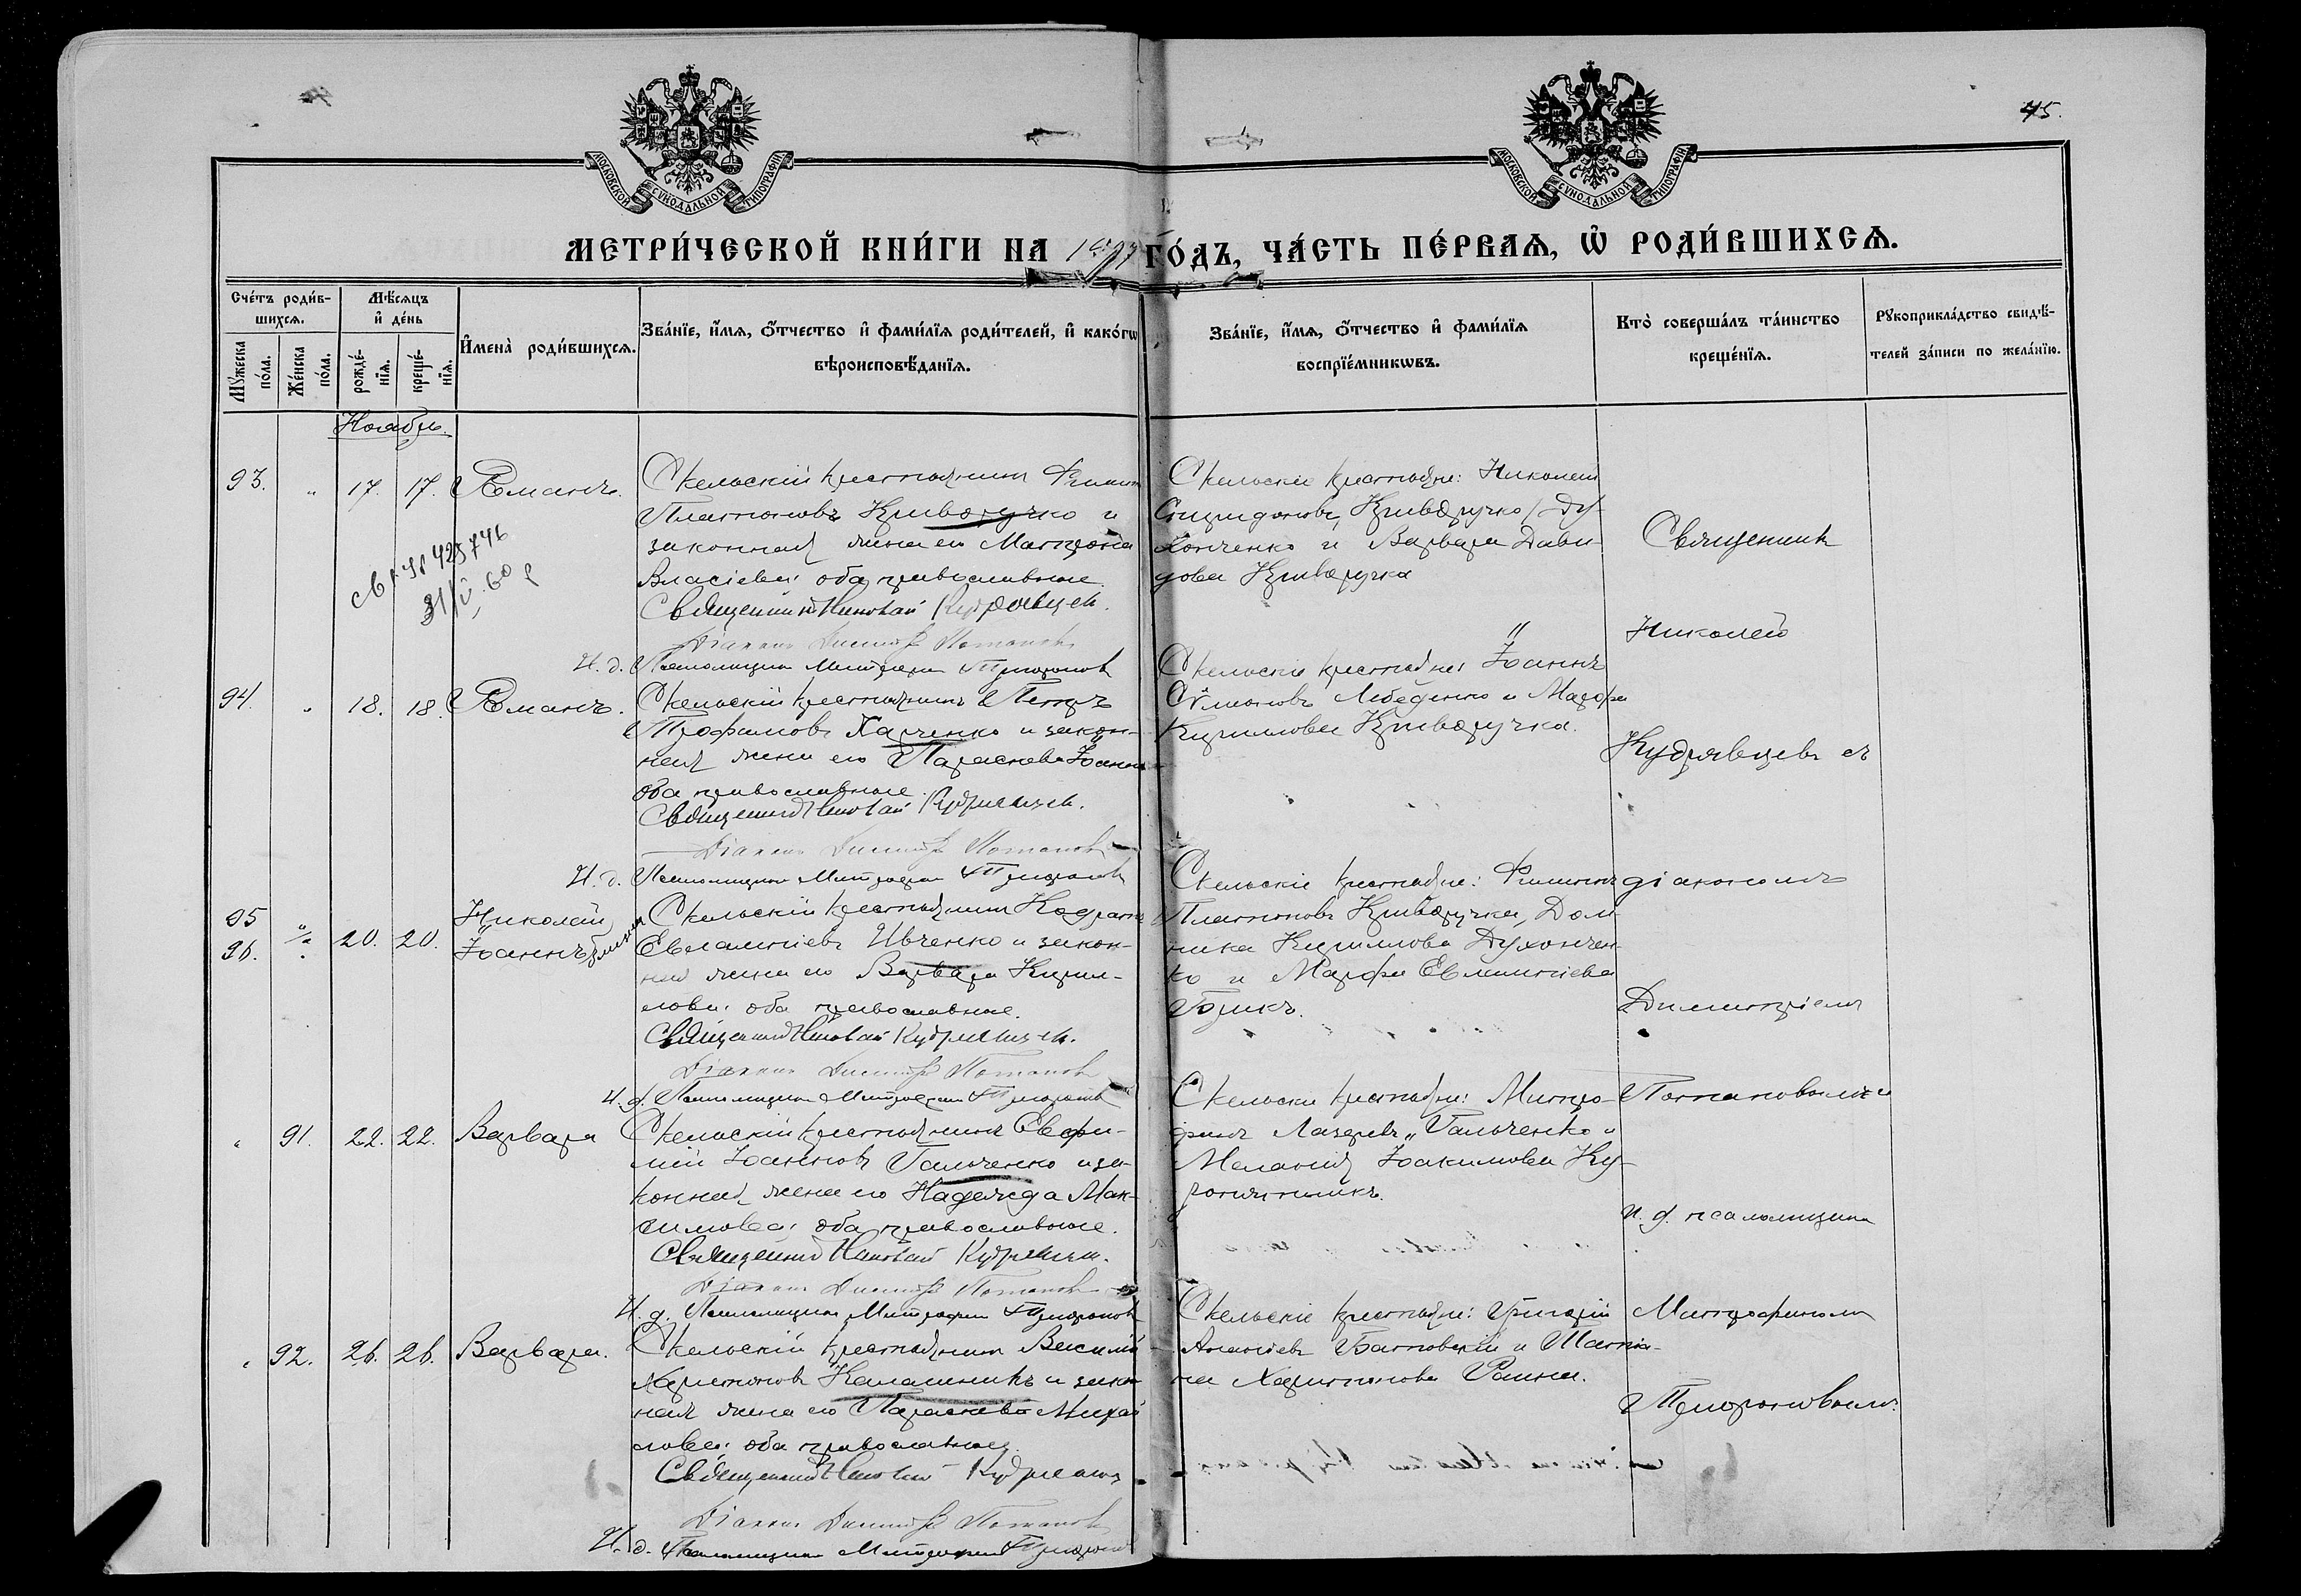 75.
МОСКОВСКОЙ СѴНОДАЛЬНОЙ ТИПОГРАФІИ
МОСКОВСКОЙ СѴНОДАЛЬНОЙ ТИПОГРАФІИ
МЕТРИ́ЧЕСКОЙ КНИ́ГИ НА ГО́ДЪ, ЧА́СТЬ ПЕ́РВАѦ, Ѡ҆ РОДИ́ВШИХСѦ.
Сче́тъ роди́в-
шихсѧ.
Мꙋ́жеска по́ла.
Же́нска по́ла.
Мѣ́сѧцъ
и҆ де́нь
рожде́-
нїѧ.
креще́-
нїѧ.
И҆мена̀ роди́вшихсѧ.
Зва́нїе, и҆́мѧ, ѻ҆́тчество и҆ фами́лїѧ роди́телей, и҆ како́гѡ
вѣроисповѣ́данїѧ.
Зва́нїе, и҆́мѧ, ѻ҆́тчество и҆ фами́лїѧ
воспрїе́мникѡвъ.
Кто̀ соверша́лъ та́инство
креще́нїѧ.
Рꙋкоприкла́дство свидѣ́-
телей за́писи по жела́нїю.
Ноябрь.
93. " 17. 17. Романъ.
Скельскій крестьянинъ Филиппъ
Платоновъ Криворучко и
законная жена его Матрона
Власіева: оба православные.
Священникъ Николай Кудрявцевъ.
Діаконъ Димитрій Потаповъ
И. д. Псаломщика Митрофанъ
Скельскіе крестьяне: Николай
Спиридоновъ Криворучко / Ду-
хонченко и Варвара Дави-
дова Криворучка
94. " 18. 18. Романъ.
Скельскій крестьянинъ Петръ
Трофимовъ Харченко и закон-
ная жена его Параскева Іоанн
оба православные.
Священникъ Николай Кудрявцевъ.
Діаконъ Димитрій Потаповъ
И. д. Псаломщика Митрофанъ
Скельскіе крестьяне: Іоаннъ
Симоновъ Лебеденко и Марфа
Кириллова Криворучка.
95
96. " 20. 20. Николай
Іоаннъ близн
Скельскій крестьянинъ Кодратъ
Евлампіевъ Ивченко и закон-
ная жена его Варвара Кирил-
лова: оба православные.
Священникъ Николай Кудрявцевъ.
Діаконъ Димитрій Потаповъ
И. д. Псаломщика Митрофанъ
Скельскіе крестьяне: Филиппъ
Платоновъ Криворучка, Дом-
ника Кириллова Духончен-
ко и Марфа Евлампіева
" 91. 22. 22. Варвара
Скельскій крестьянинъ Евфи-
мій Іоанновъ Гальченко и за-
конная жена его Надежда Мак-
симова: оба православные.
Священникъ Николай Кудрявцевъ.
Діаконъ Димитрій Потаповъ
И. д. Псаломщика Митрофанъ
Скельскіе крестьяне: Митро-
фанъ Лазаревъ Гальченко и
Меланія Іоакимова
" 92. 26. 26. Варвара.
Скельскій крестьянинъ Василій
Харитоновъ Калашникъ и закон
ная жена его Параскева Михай
лова: оба православные.
Священникъ Николай
Діаконъ Димитрій Потаповъ
И. д. Псаломщика Митрофанъ
Скельскіе крестьяне: Григорій
и Татіа-
на Харитонова
Священникъ
Николай
Кудрявцевъ съ
діакономъ
Димитріемъ
Потаповымъ и
и. д. псаломщика
Митрофаномъ